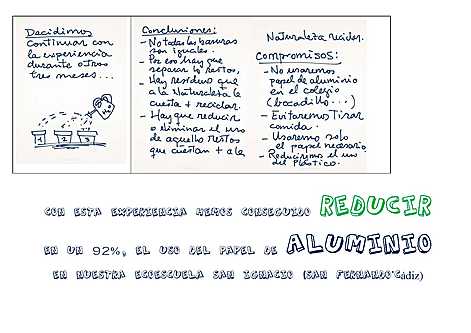 Decidimos
continuar con
la experiencia
durante otros
tres meses...
1 2 3
Conclusiones:
- No todas las basuras
son iguales.
- Por eso hay que
separar los restos,
- Hay residuos que
a la Naturaleza le
cuesta + reciclar.
- Hay que reducir
o eliminar el uso
de aquellos restos
que cuestan + a la
Naturaleza reciclar.
Compromisos:
- No usaremos
papel de aluminio
en el colegio
(bocadillo...)
- Evitaremos tirar
comida.
- Usaremos solo
el papel necesario
- Reduciremos el uso
del plástico.
CON ESTA EXPERIENCIA HEMOS CONSEGUIDO REDUCIR
EN UN 92%, EL USO DEL PAPEL DE ALUMINIO
EN NUESTRA ECOESCUELA SAN IGNACIO (SAN FERNANDO-Cádiz)